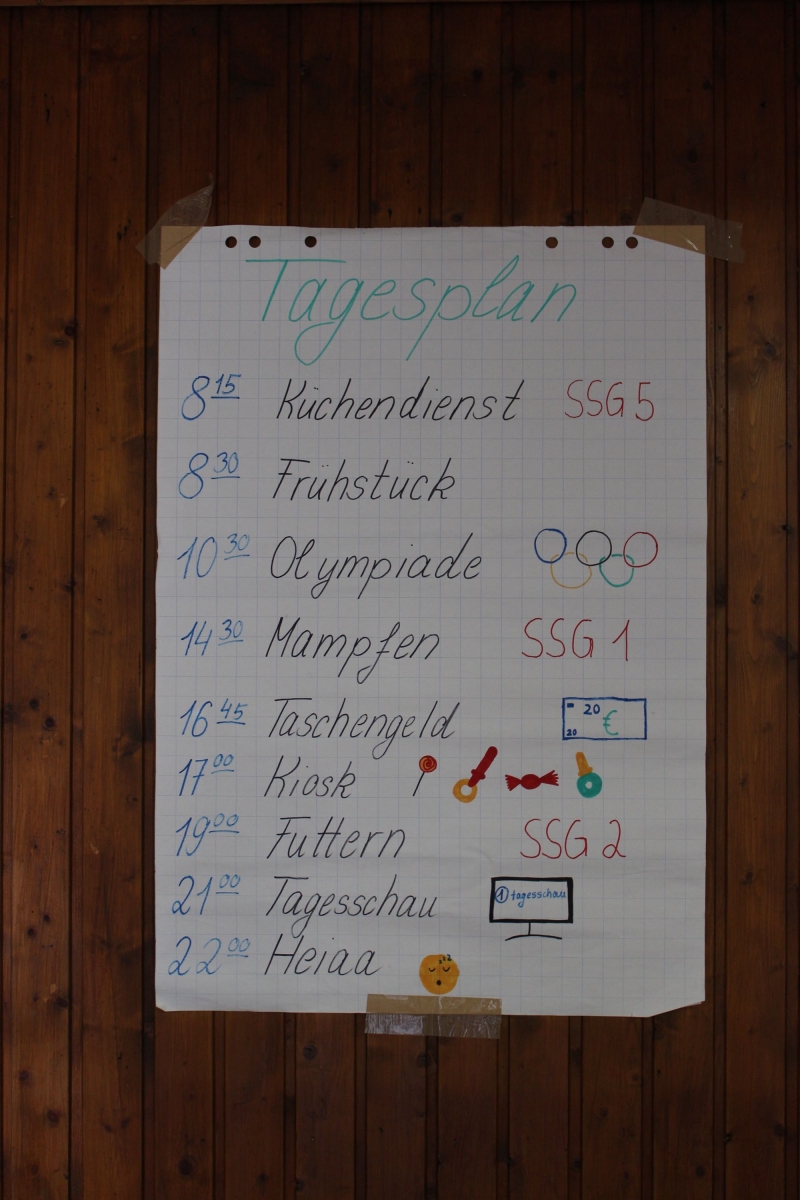 Tagesplan
8 15 Küchendienst SSG 5
8 30 Frühstück
10 30 Olympiade
14 30 Mampfen SSG 1
16 45 Taschengeld 20 € 20
17 00 Kiosk
19 00 Futtern SSG 2
21 00 Tagesschau 1 tagesschau
22 00 Heiaa zzz